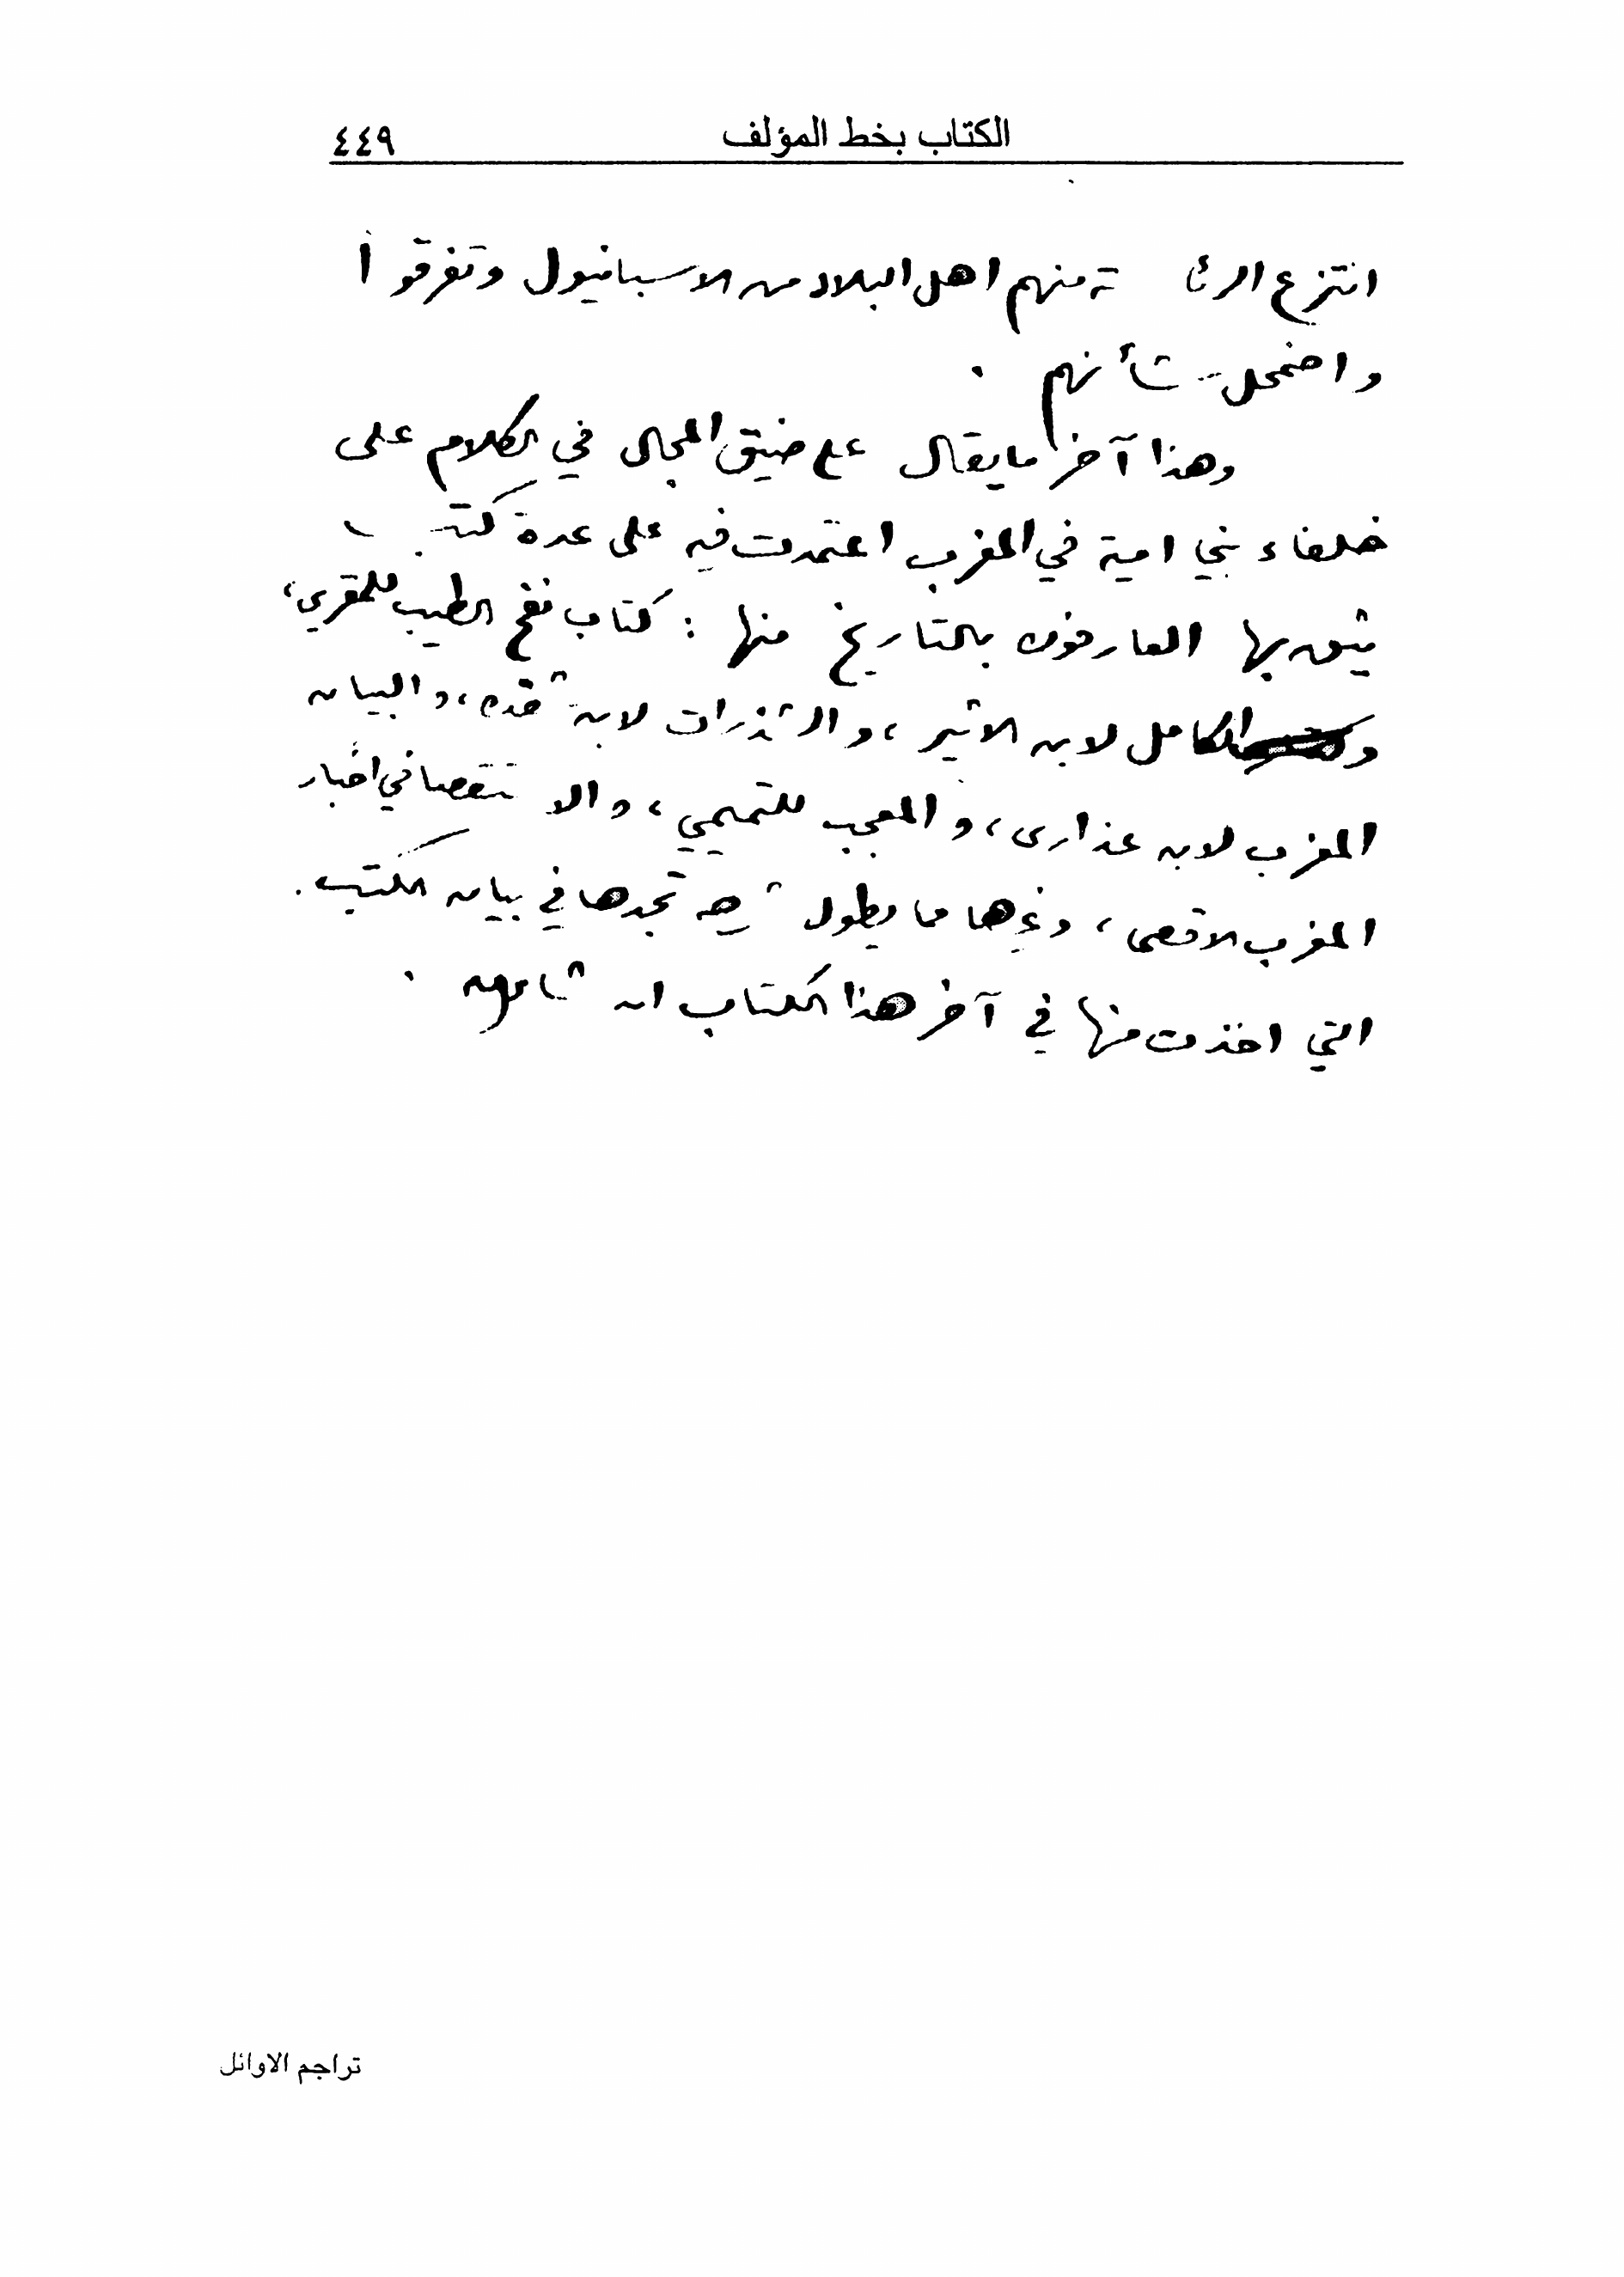 الكتاب بخط المؤلف ٤٤٩
انتزع الرئاسة منهم اهل البلاد من الاسبانيول وتفرقوا
واضمحل شأنهم .
وهذا آخر ما يقال على ضيق المجال في الكلام على
خلفاء بني امية في المغرب اعتمدت فيه على عدة كتب
يثق بها العارفون بالتاريخ منها : كتاب نفح الطيب للمقري،
والكامل لابن الاثير ، والشذرات لابن ، والبيان
المغرب لابن عذارى ، والمعجب للتميمي ، والاستقصا في اخبار
المغرب الاقصى ، وغيرها مما يطول شرحه تجدها في بيان الكتب .
التي اخذت منها في آخر هذا الكتاب ان شاء الله .
تراجم الاوائل